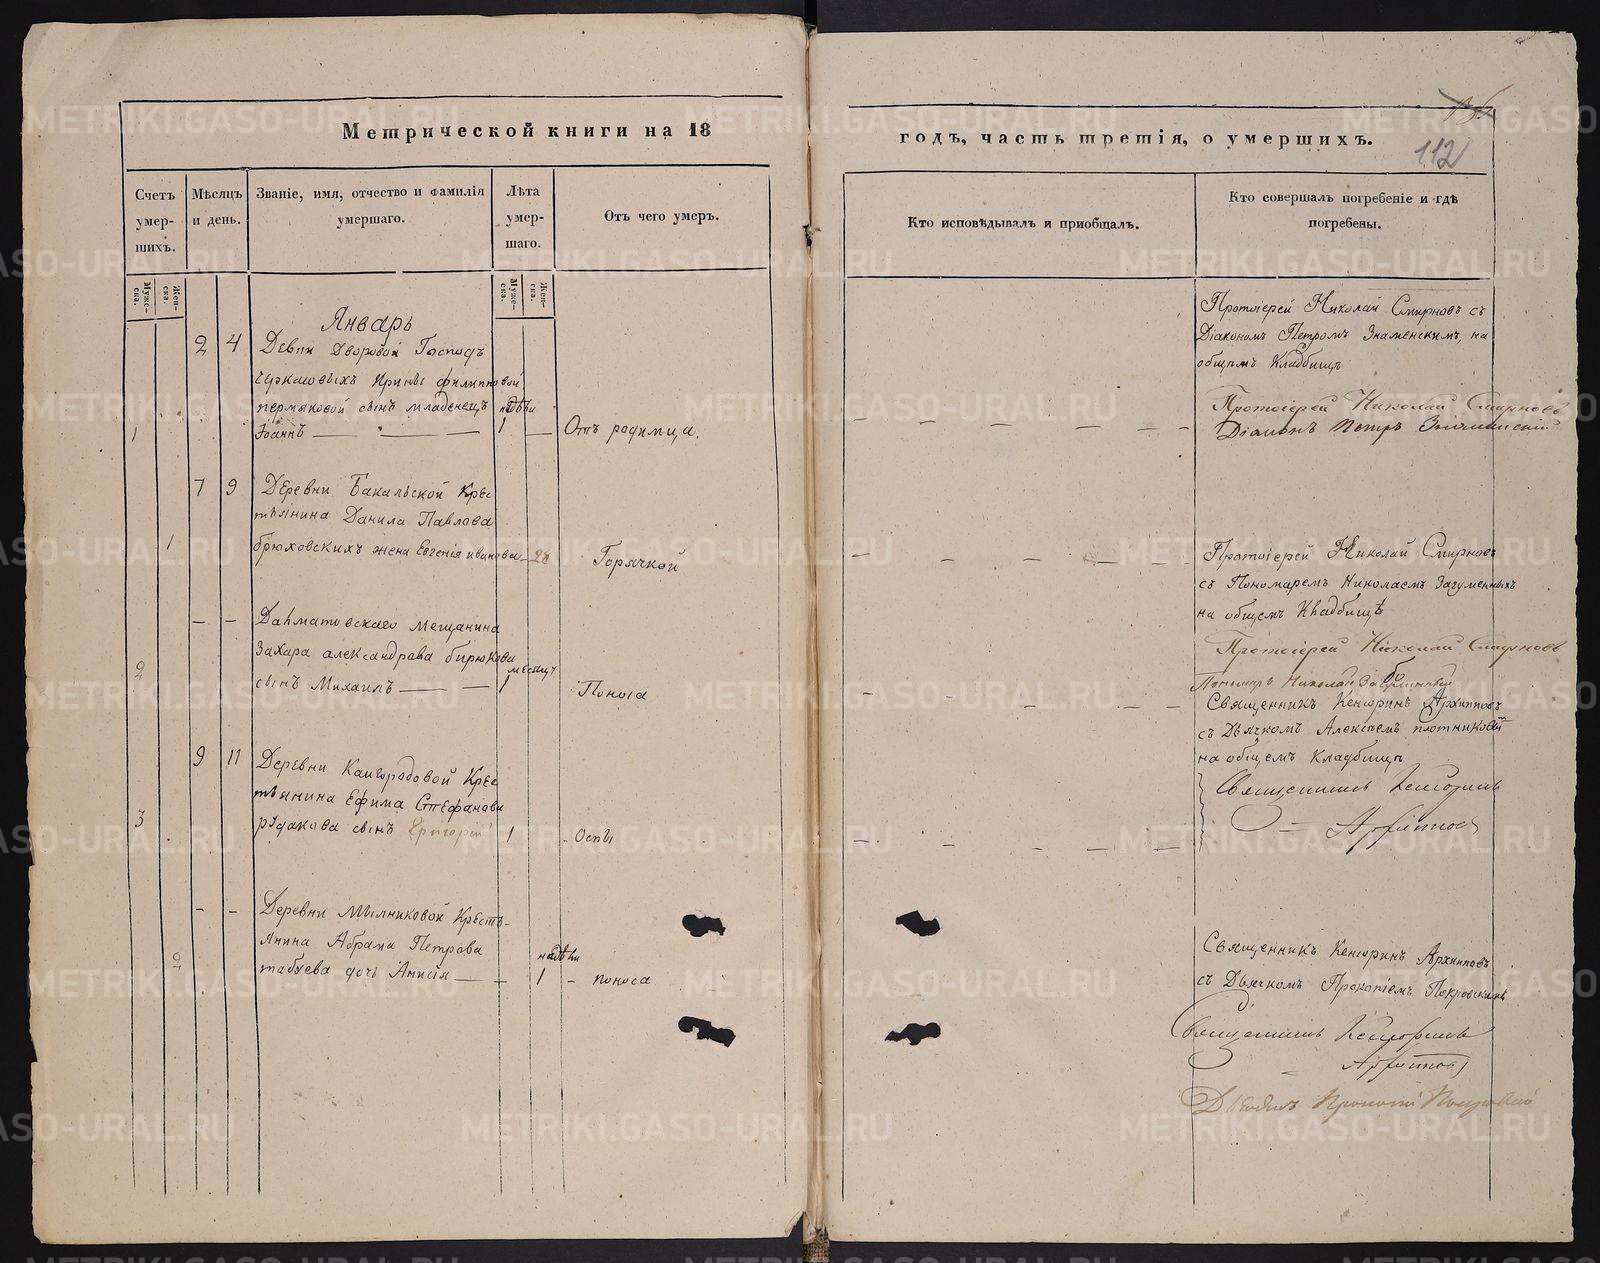 Метрической книги на 18
Счетъ умер- шихъ.
Мѣсяцъ и день.
Званіе, имя, отчество и фамилія умершаго.
Лѣта умер- шаго.
Отъ чего умеръ.
Муже- ска.
Жен- ска.
Муже- ска.
Жен- ска.
Январь
2 4 Дворовой Господъ
Ирины филипповой
пермяковой сынъ младенецъ
1 Іоаннъ 1 Отъ родимца.
7 9 Деревни Бакальской Крес
тьянина Данила Павлова
1 брюховскихъ жена Евгенія иванова
Горячкой
— — Далматовскаго мещанина
Захара александрава бирюкова месяцъ
2 сынъ Михаилъ 1 Поноса
9 11 Деревни Кайгородовой Крес
тьянина Ефима Стефанова
3 рудакова сынъ Григорій 1 Оспы
— — Деревни Мыльниковой Кресть-
янина Абрама Петрова
2 дочь Анисія 1 поноса
годъ, часть третія, о умершихъ.
112
Кто исповѣдывалъ и пріобщалъ.
Кто совершалъ погребеніе и гдѣ погребены.
Протоіерей Николай Смирновъ съ
Діакономъ Петромъ Знаменскимъ, на
общемъ Кладбищѣ
Протоіерей Николай Смирновъ
Діаконъ Петръ Знаменскій
Протоіерей Николай Смирновъ
съ Пономаремъ Николаемъ Загуменныхъ
на общемъ Кладбищѣ
Протоіерей Николай Смирновъ
Николай
Священникъ Кенсоринъ Архиповъ
съ Дьячкомъ Алексѣемъ плотниковым
на общемъ кладбищѣ
Священникъ Кенсоринъ
Архиповъ
Священникъ Кенсоринъ Архиповъ
съ Дьячкомъ Прокопіемъ Покровскимъ
Священникъ Кенсоринъ
Архиповъ
Прокопій Покровскій
METRIKI.GASO-URAL.RU